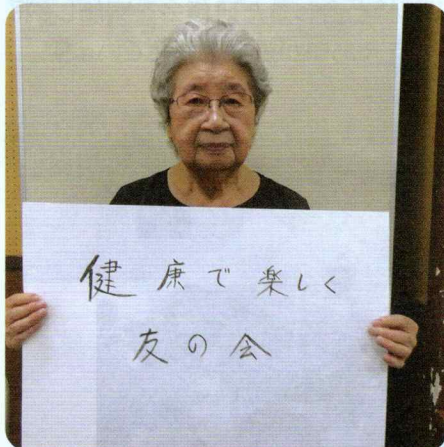 健康で楽しく
友の会